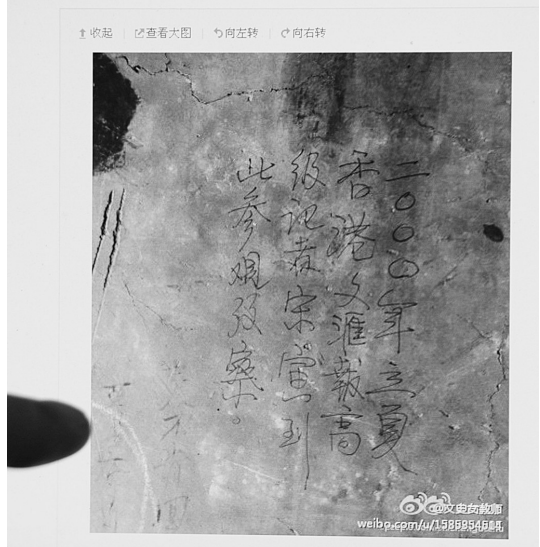 收起 查看大图 向左转 向右转
二〇〇四年立夏
香港文滙報高
级记者宋寓到
此参观考察。
@文史女教师
weibo.com/u/1585954614